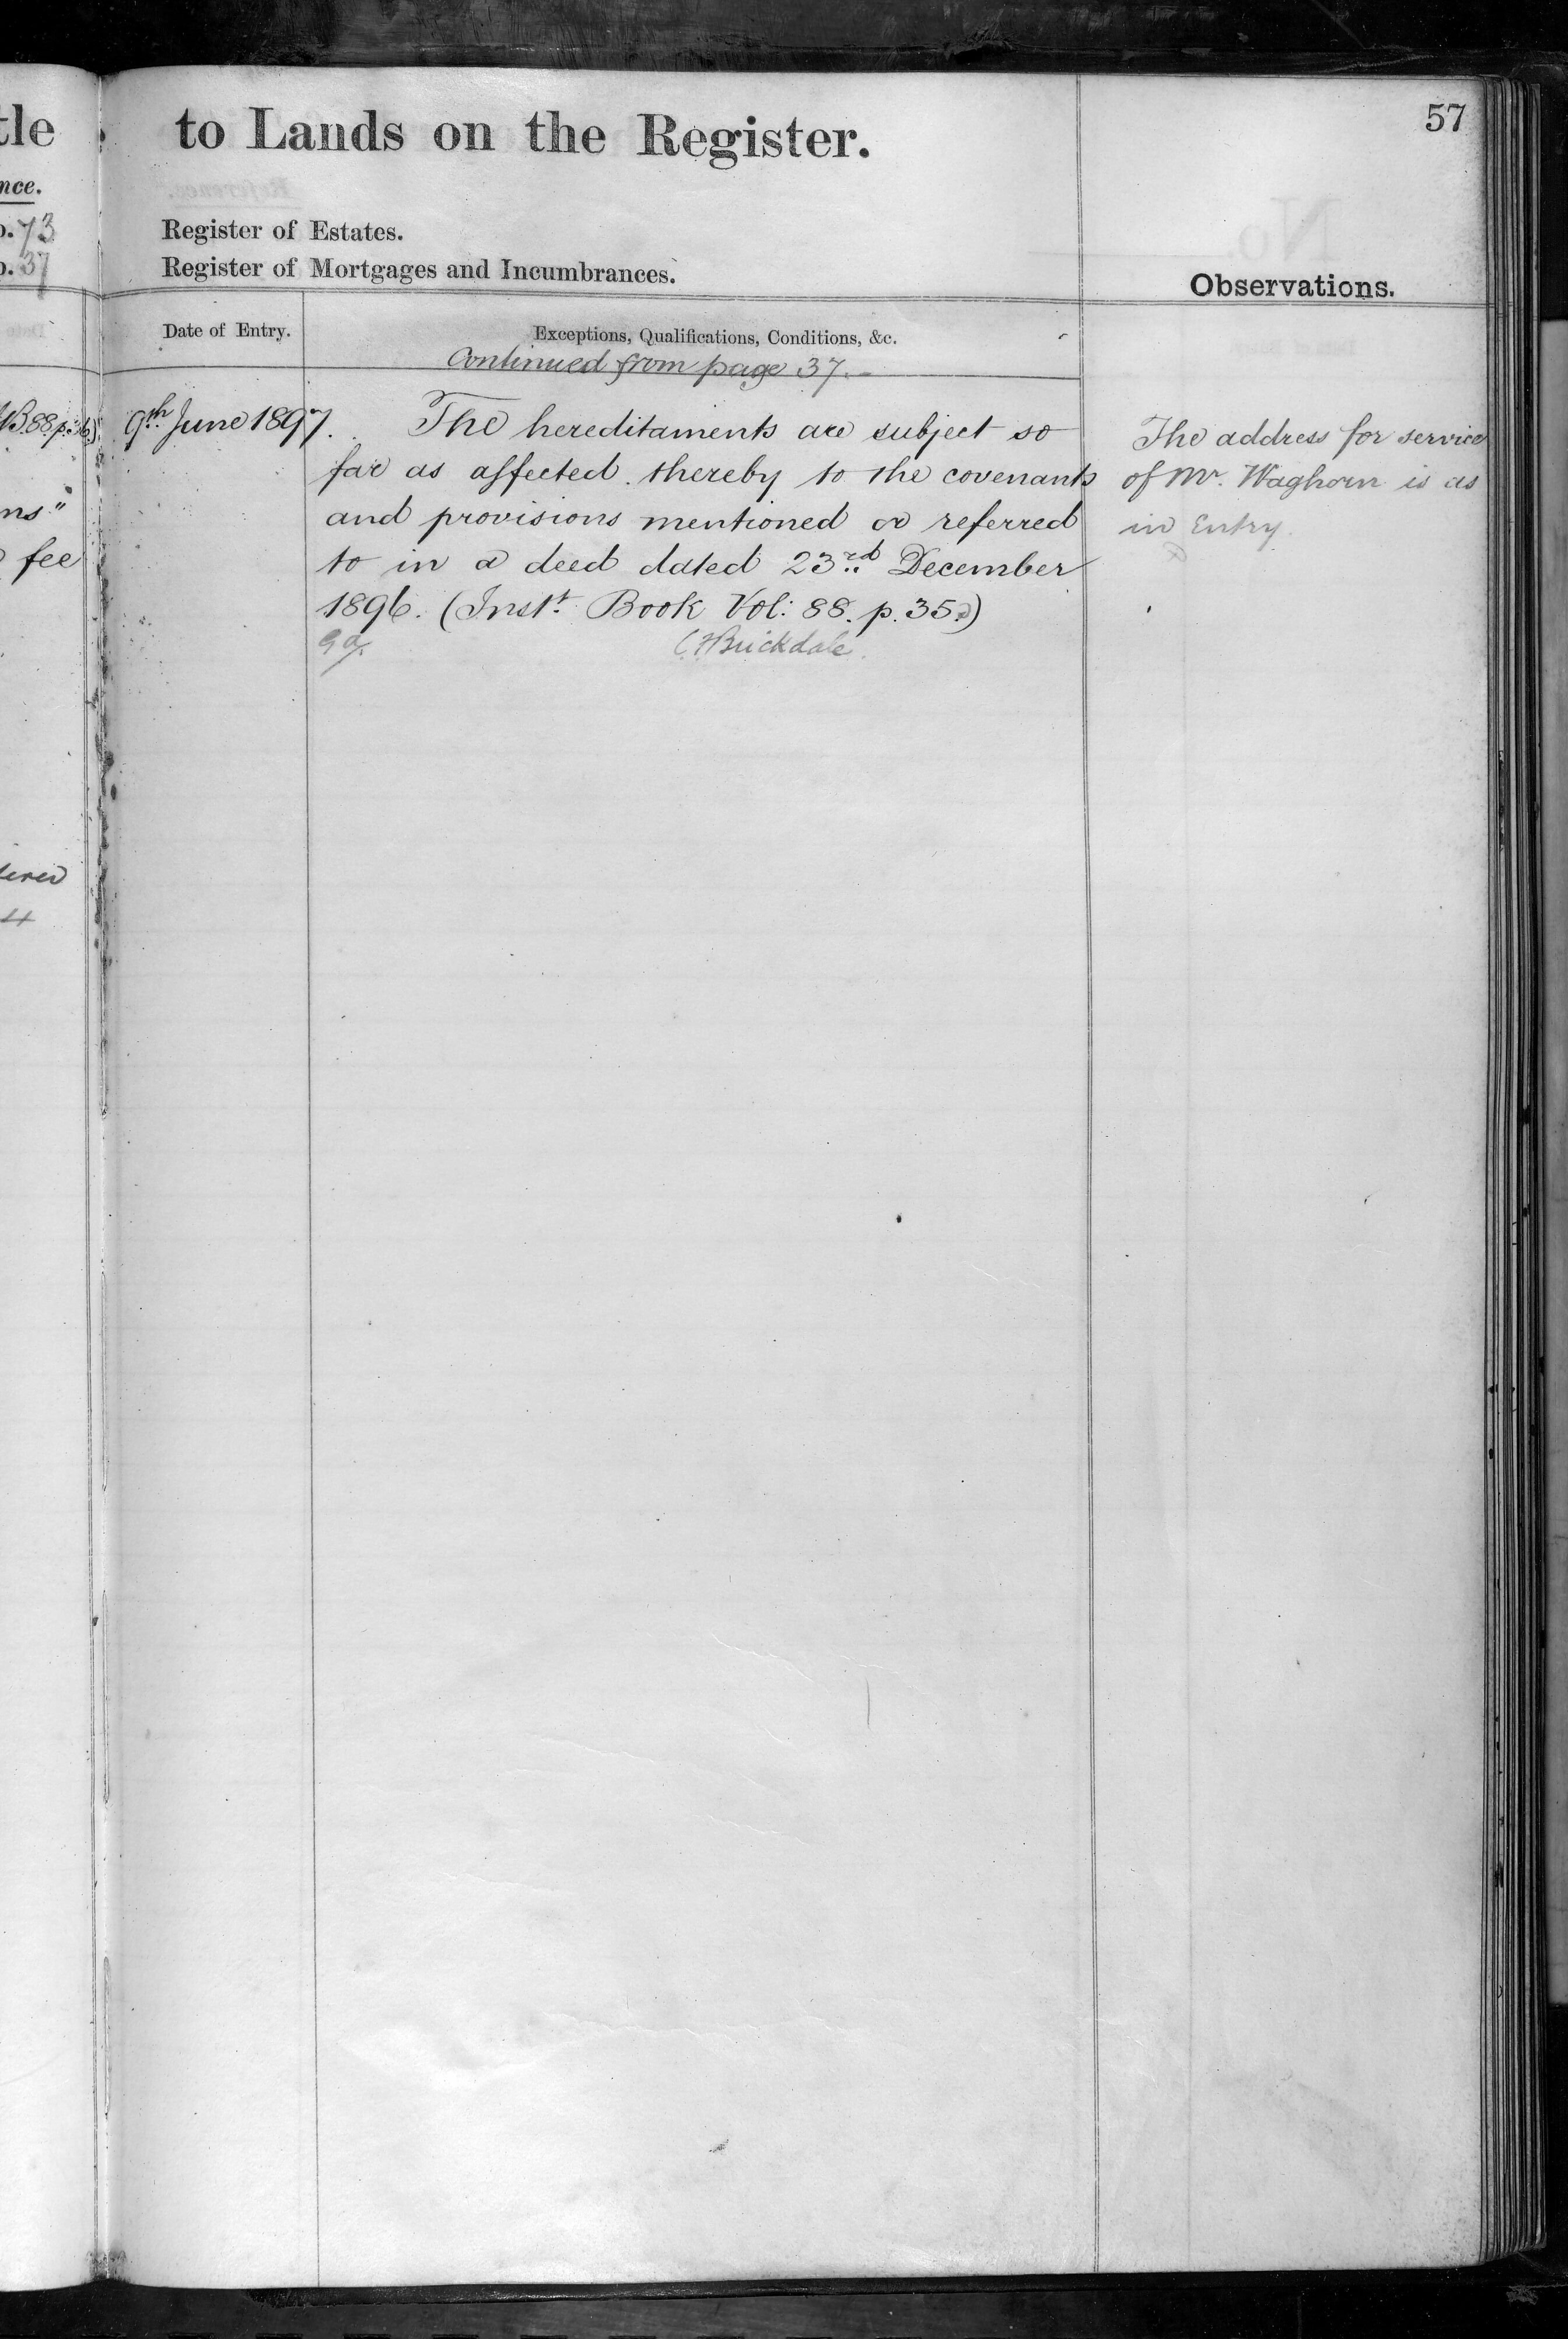 57
to Lands on the Register.
Register of Estates.
Register of Mortgages and Incumbrances.
Observations.
Date of Entry.
Exceptions, Qualifications, Conditions, &c.
Continued from page 37.
9th June 1897.
The hereditaments are subject so
far as affected thereby to the covenants
and provisions mentioned or referred
to in a deed dated 23rd December
1896. (Inst. Book Vol: 88. p. 35.)
C F Brickdale.
The address for service
of Mr. Waghorn is as
in Entry.
tle
nce.
73
37
B.88 p.36)
ns"
fee
4